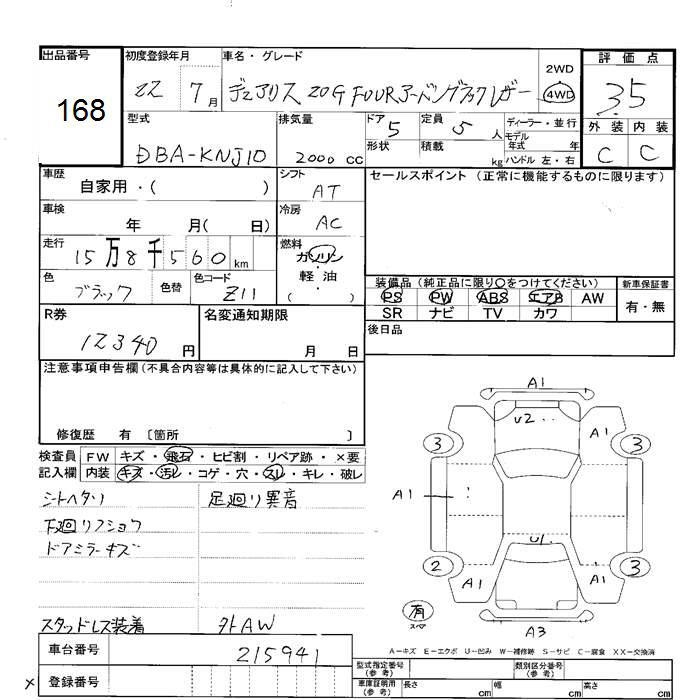 出品番号 初度登録年月 車名・グレード 評価点
168 22 7月 デュアリス 20G FOUR アーバンブラックレザー 2WD 4WD 3.5
型式 排気量 ドア 5 定員 5人 ディーラー・並行 外装 内装
DBA-KNJ10 2000 cc 形状 積載 kg モデル年式 年 ハンドル 左・右 C C
車歴 シフト セールスポイント (正常に機能するものに限ります)
自家用・( ) AT
車検 冷房
年 月( 日) AC
走行 燃料
15万8千560km ガソリン
軽油
( )
色 色替 色コード 装備品 (純正品に限り○をつけてください) 新車保証書
ブラック Z11 PS PW ABS エアB AW 有・無
SR ナビ TV カワ
R券 名変通知期限 後日品
12340円 月 日
注意事項申告欄 (不具合内容等は具体的に記入して下さい)
修復歴 有 〔箇所 〕
検査員 FW キズ・飛石・ヒビ割・リペア跡・×要
記入欄 内装 キズ・汚レ・コゲ・穴・スレ・キレ・破レ
シートヘタリ 足廻り異音
下廻りフショク
ドアミラーキズ
スタッドレス装着 外AW
A1
U2
3 A1 3
A1
U1
2 A1 A1 3
有
スペア
A3
A-キズ E-エクボ U-凹み W-補修跡 S-サビ C-腐食 XX-交換済
車台番号 215941 型式指定番号 (参考) 類別区分番号 (参考)
× 登録番号 車庫証明用 (参考) 長さ cm 幅 cm 高さ cm